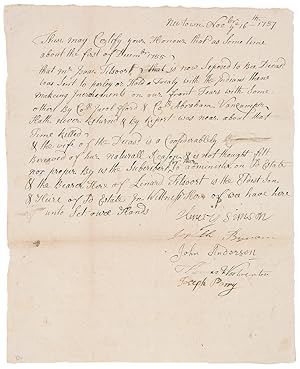 Newtown Novbr 16th 1757
These may Certify your Honour that as Some time
about the first of 1755
that mr Isaac Tilwort that is now Soposed to Be Decasd
was Sent to paley or Hold a Treaty with the Indians then
making Incredients on our front Tears with Some
others By Coll Jacob ford & Coll Abraham Vancamper
Hath never Returnd & by Report was near about that
Time Killed
& the wife of the Decasd is a Considerabely
Bereaved of her naturall Reason & is not thought fitt
nor proper By us the Superibers to administer on Estate
& the Bearer Hereof Lenard Tilwort is the Eldest Son
& Heire of Estate In Wittness Hereof we have here
unto Set oure Hands
Simson
John Anderson
Thomas Woolverton
Joseph Perry